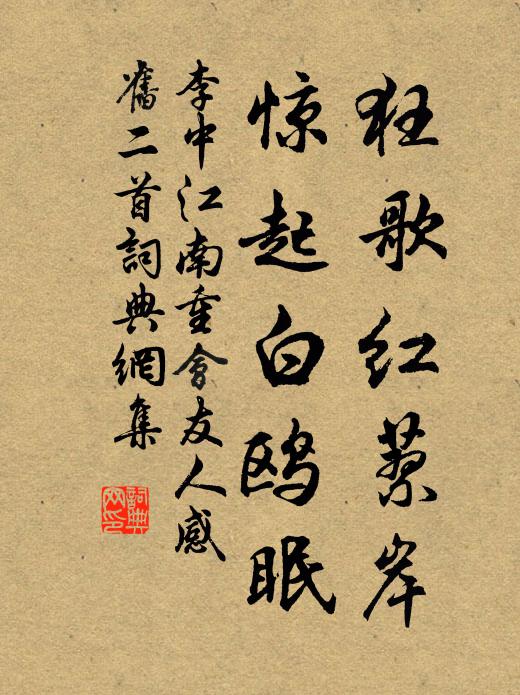 狂歌红蓼岸
惊起白鸥眠
李中江南重會友人感
舊二首詞典網集
詞典
网印